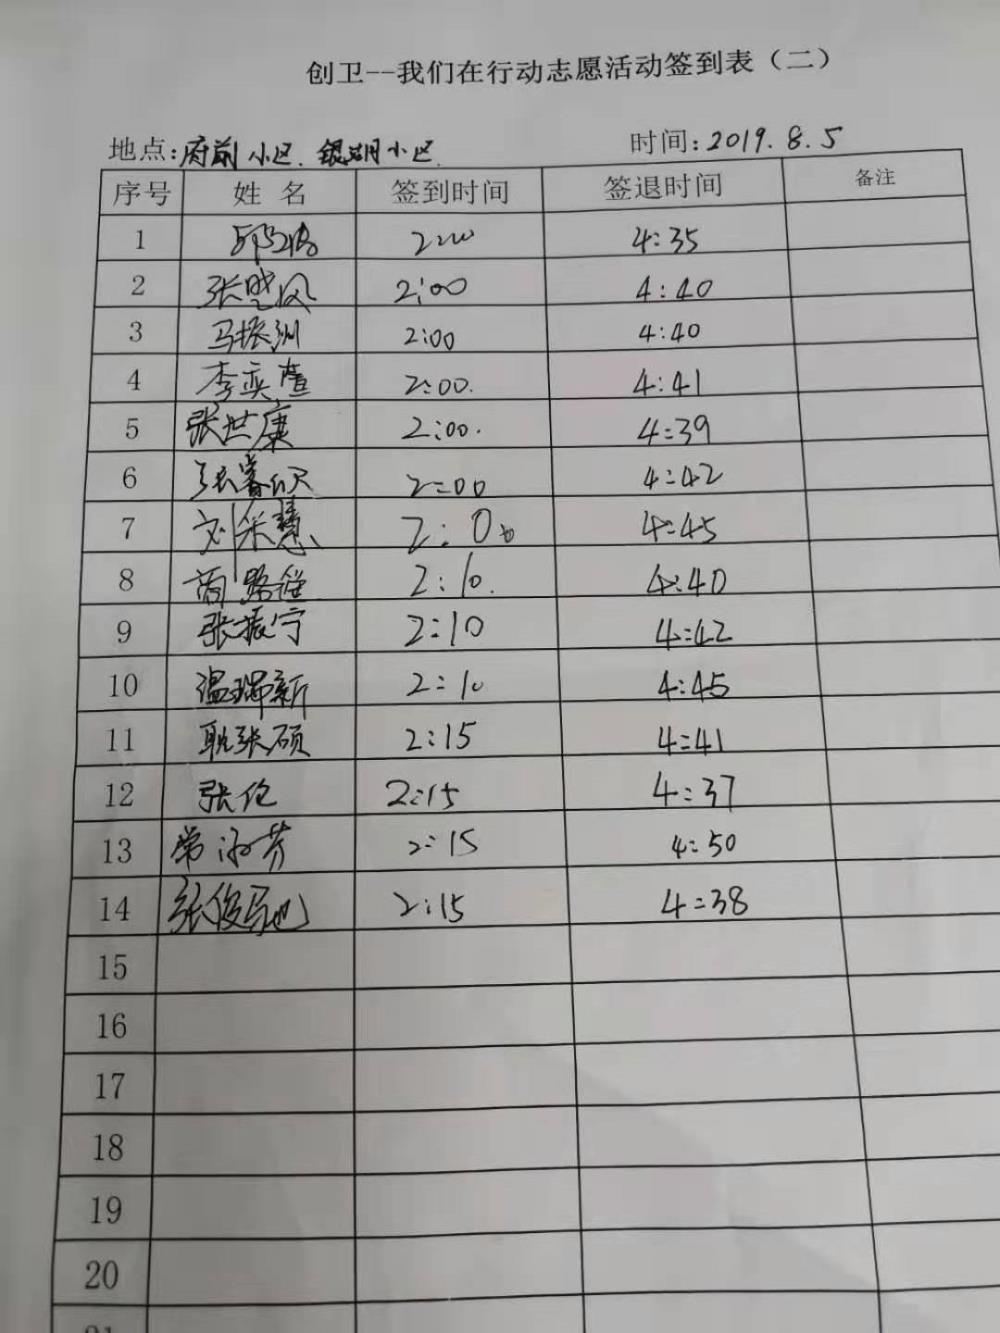 创卫--我们在行动志愿活动签到表（二）
地点:府前小区.银湖小区. 时间:2019.8.5
序号 姓名 签到时间 签退时间 备注
1 2:00 4:35
2 张晓风 2:00 4:40
3 马振洲 2:00 4:40
4 李奕萱 2:00. 4:41
5 张世康 2:00. 4:39
6 张睿 2:00 4:42
7 刘乐慧 2:00 4:45
8 商路 2:10. 4:40
9 张振宁 2:10 4:42
10 温瑞新 2:10 4:45
11 耿张硕 2:15 4:41
12 张伦 2:15 4:37
13 常淑芳 2:15 4:50
14 张俊驰 2:15 4:38
15
16
17
18
19
20
21